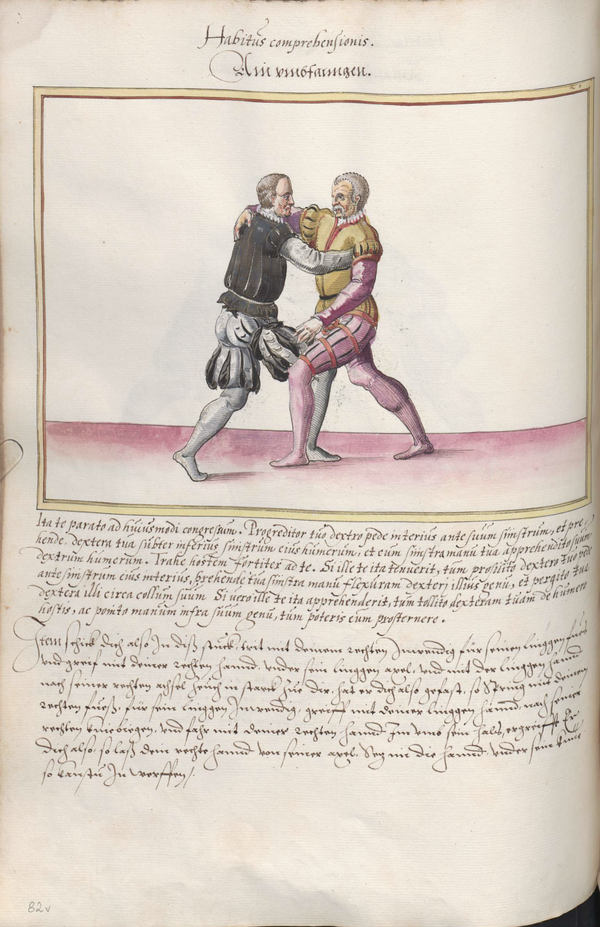 Habitus comprehensionis.
Ain vmbfanngen.
Ita te parato ad huiusmodi congressum. Progreditor tuo dextro pede interius ante suum sinistrum, et pre-
hende dextera tua subter inferius sinistrum eius humerum, et eum sinistra manu tua apprehendito suum
dextrum humerum. Trahe hostem fortiter ad te. Si ille te ita tenuerit, tum prosilito dextero tuo pede
ante sinistrum eius interius, prehende tua sinistra manu flexuram dexteri illius genu, et pergito tua
dextera illi circa collum suum. Si vero ille te ita apprehenderit, tum tollito dexteram tuam de humero
hostis, ac ponito manum infra suum genu, tum poteris eum prosternere.
Item schick dich also In diß stuckh, trit mit deinem rechten Inwendig für seinen linggen fueß
vnd greif mit deiner rechten hannd, vnder sein linggen axel, vnd mit der linggen hannd
nach seiner rechten achsel zeuch in starck zue dir, hat er dich also gefast, so spring mit deinem
rechten fueß, für sein linggen Inwendig, greiff mit deiner linggen hannd, nach seiner
rechten kniebiegen, vnd fahr mit deiner rechten hannd Im vmb sein hals, ergreifft Er
dich also, so laß dein rechte hannd von seiner axel, Setz im die hannd, vnder sein knie
so kanstu In werffen/.
82v